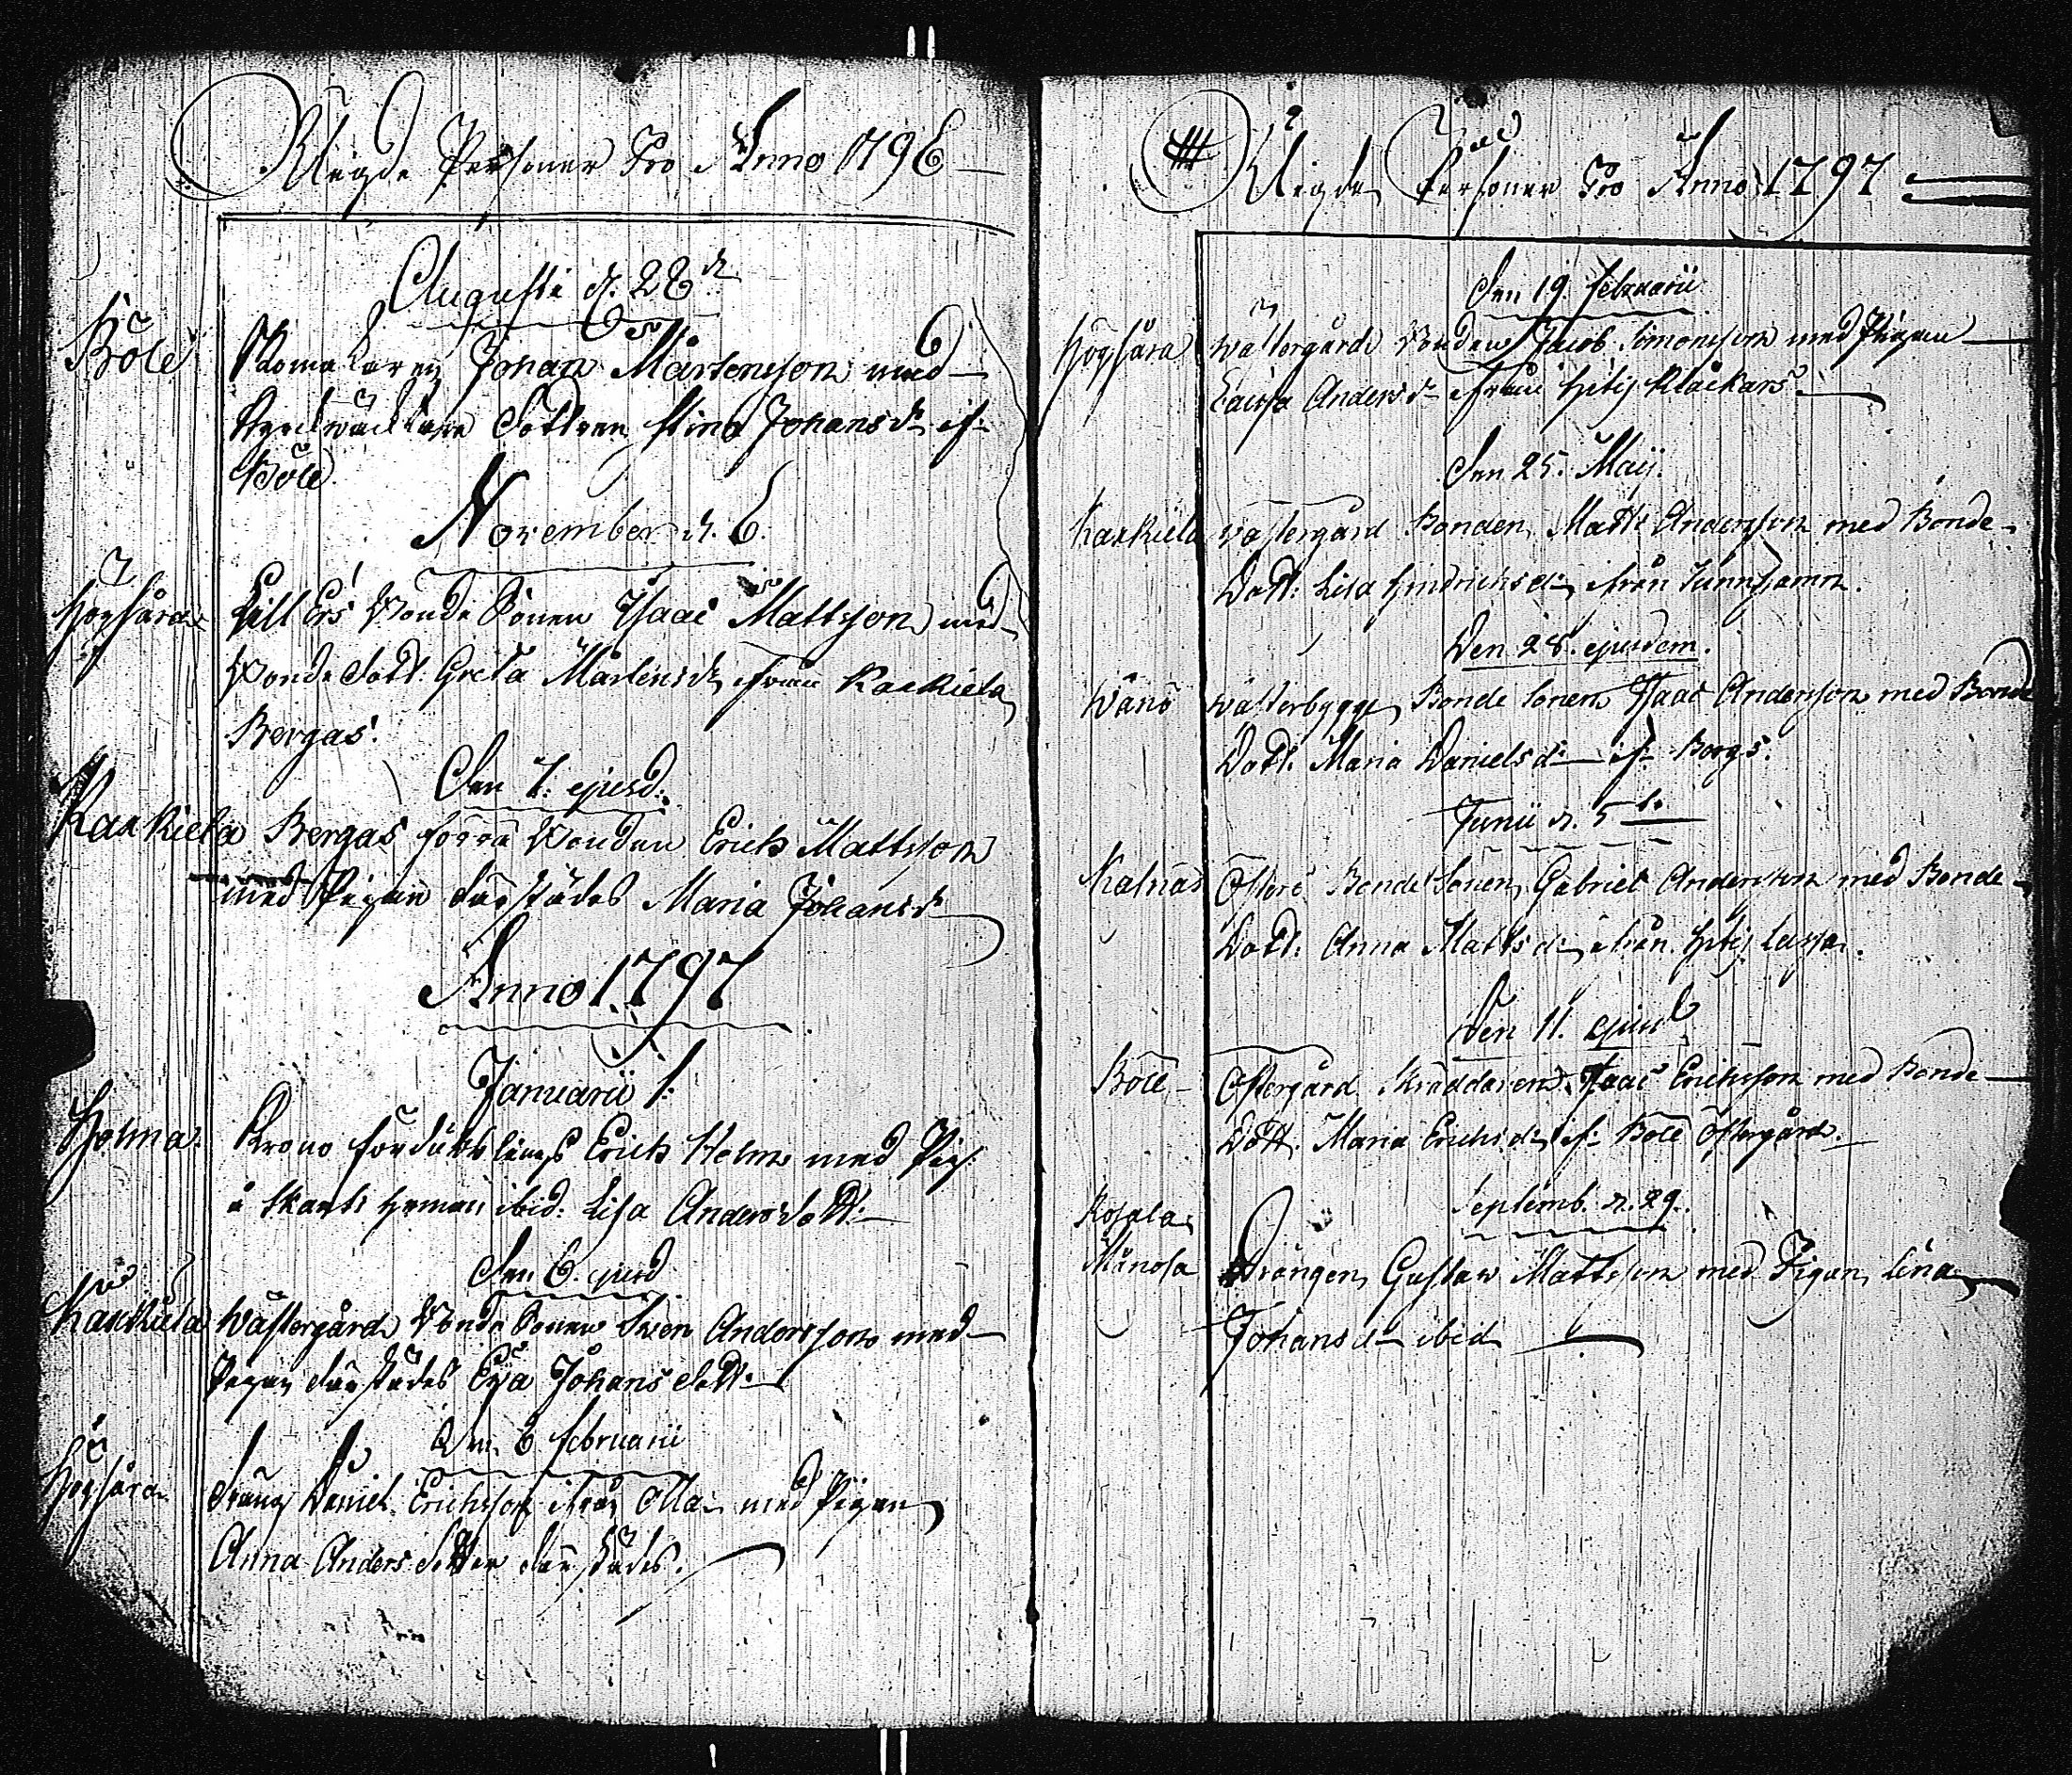 Wigde Personer Pro Anno 1796
Augusti d. 28de
Böle
Skomakaren Johan Mårtensson med
Dottren Stina Johansdr if.
Böle
November d. 6.
Högsåra
Lill Ers Bonde Sonen Isaac Mattsson med
Bonde Dott: Greta Mårtensdr ifrån Kaxkiela
Bergas.
Den 7. ejusd:
Kaxkiela Bergas förra Bonden Erich Mattsson
med Pigan därstädes Maria Johansdr
Anno 1797
Januarii 1:
Holma
Krono Erich Holm med Pig:
å ibid: Lisa Andersdott:
Den 6. ejusd
Kaxkiela Wästergårds Bonde Sonen Sven Andersson med
Pigan därstädes Eva Johans dott.
Den 6 februarii
Högsåra
Dräng Daniel Erichsson ifrån Olla med Pigan
Anna Anders dotter därstädes.
Wigde Personer Pro Anno 1797
Den 19. februarii
Högsåra Wästergårds Bonden Jacob Simonsson med Pigan
Caisa Andersdr ifrån Hitis Klåckars
Den 25. Maij.
Kaxkiela Wästergård Bonden Matts Andersson med Bonde
Dott: Lisa Hindrichsdr ifrån Tunnhamn.
Den 28. ejusdem.
Wänö Wästerbygge Bonde Sonen Isaac Andersson med Bonde
Dott. Maria Danielsdr if. Borgs.
Junii d. 5te
Kalnäs Österö Bonde Sonen Gabriel Andersson med Bonde
Dott: Anna Mattsdr ifrån Hitis Lassa.
Den 11. ejusd
Böle Östergård Skräddaren Isaac Erichsson med Bonde
Dott. Maria Erichsdr if. Böle Östergård.
Septemb. d. 29.
Rosala
Månosa Drängen Gustaw Mattsson med Pigan Lena
Johansdr ibid